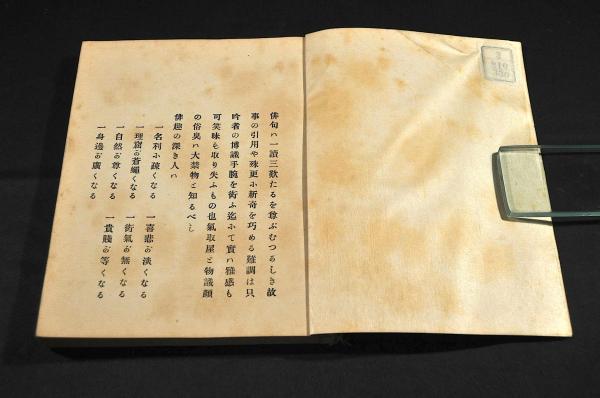 俳句ハ一讀三歎たるを尊ぶむつゝしき故
事の引用や殊更ニ新奇を巧める難調は只
吟者の博識手腕を衒ふ迄ニて實ハ雅感も
可笑味も取り失ふもの也氣取屋と物識顔
の俗臭ハ大禁物と知るべし
俳趣の深き人ハ
一名利ニ疏くなる 一喜悲が淡くなる
一理窟が蒼蠅くなる 一衒氣が無くなる
一自然が尊くなる 一貴賤が等くなる
一身邊が廣くなる